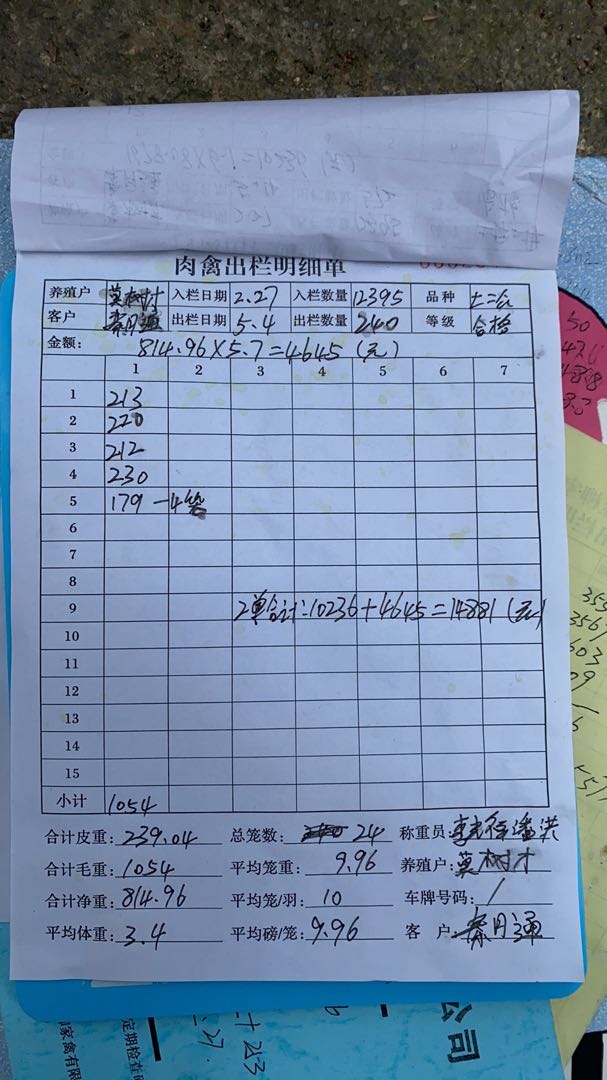 肉禽出栏明细单
养殖户 莫树才 入栏日期 2.27 入栏数量 12395 品种 土二
客户 秦月通 出栏日期 5.4 出栏数量 240 等级 合格
金额: 814.96×5.7=4645(元)
1 2 3 4 5 6 7
1 213
2 220
3 212
4 230
5 179-4笼
6
7
8
9 2单合计:10236+4645=14881(元)
10
11
12
13
14
15
小计 1054
合计皮重: 239.04 总笼数: 24 称重员:
合计毛重: 1054 平均笼重: 9.96 养殖户: 莫树才
合计净重: 814.96 平均笼/羽: 10 车牌号码: /
平均体重: 3.4 平均磅/笼: 9.96 客户: 秦月通
公司
定期检查
家禽有限